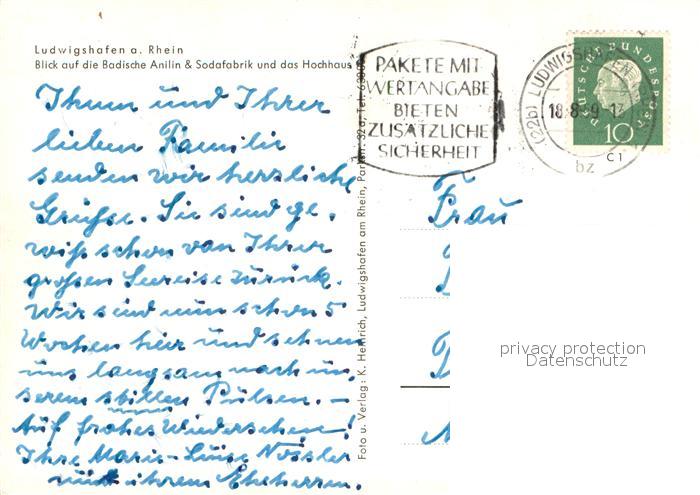 Ludwigshafen a. Rhein
Blick auf die Badische Anilin & Sodafabrik und das Hochhaus
Ihnen und Ihrer
lieben Familie
senden wir herzliche
Grüße. Sie sind ge-
wiß schon von Ihrer
großen Seereise zurück.
Wir sind nun schon 5
Wochen hier und sehnen
uns langsam nach un-
serem stillen
Auf frohes Wiedersehen!
Ihre Marie-Luise Nossler
und ihrem Eheherren.
Foto u. Verlag: K. Heinrich, Ludwigshafen am Rhein, 32a, Tel.
PAKETE MIT
WERTANGABE
BIETEN
ZUSÄTZLICHE
SICHERHEIT
(22b) LUDWIGSHAFEN
18.8. 9-13
bz
DEUTSCHE BUNDESPOST
10
C1
Frau
privacy protection
Datenschutz